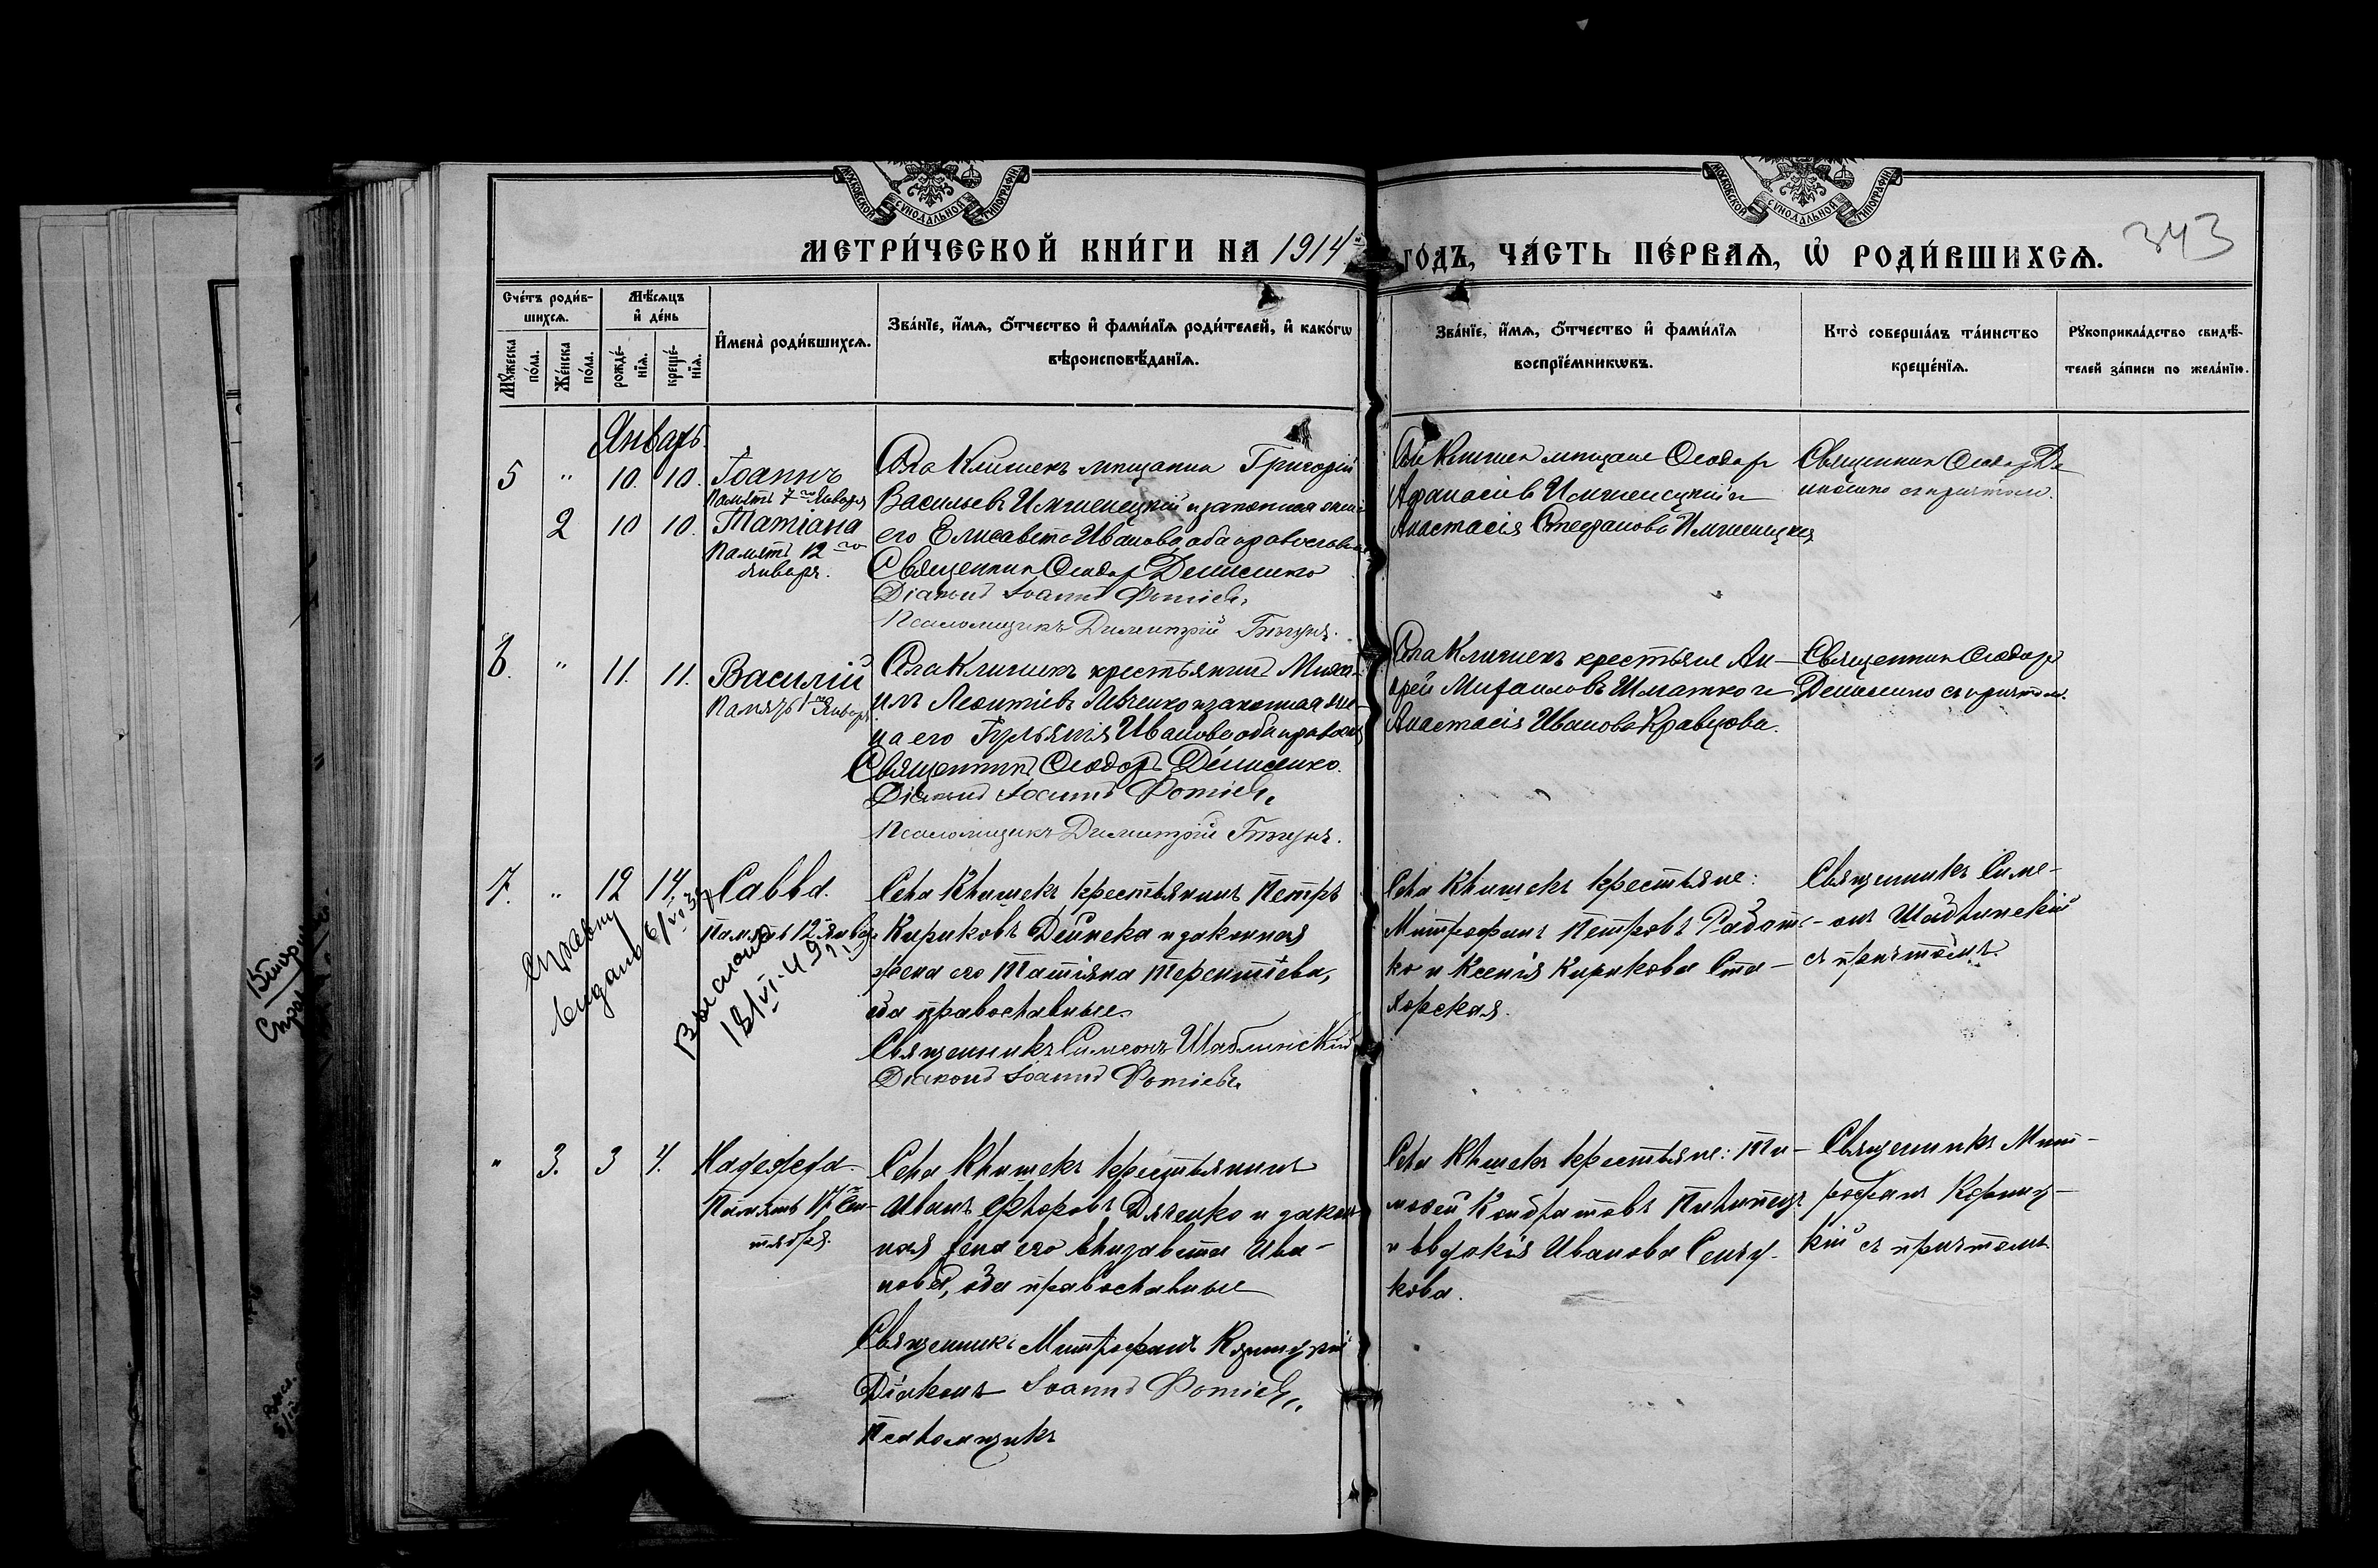 МОСКОВСКОЙ СУНОДАЛЬНОЙ ТИПОГРАФІИ
МОСКОВСКОЙ СУНОДАЛЬНОЙ ТИПОГРАФІИ
МЕТРИ́ЧЕСКОЙ КНИ́ГИ НА 1914 ГО́ДЪ, ЧА́СТЬ ПЕ́РВАѦ, Ѽ РОДИ́ВШИХСѦ.
343
Сче́тъ роди́в-
шихсѧ.
Мѣ́сѧцъ
и҆ де́нь
Мꙋ́жеска
по́ла.
Же́нска
по́ла.
рожде́-
нїѧ.
креще́-
нїѧ.
И҆мена̀ роди́вшихсѧ.
Зва́нїе, и҆́мѧ, ѻ҆́тчество и҆ фами́лїѧ роди́телей, и҆ како́гѡ
вѣроисповѣ́данїѧ.
Зва́нїе, и҆́мѧ, ѻ҆́тчество и҆ фами́лїѧ
воспрїе́мникѡвъ.
Кто̀ соверша́лъ та́инство
креще́нїѧ.
Рꙋкоприкла́дство свидѣ́-
телей за́писи по жела́нїю.
Январь.
5 " 10. 10. Іоаннъ
Память 7го Января
Села Клишекъ мѣщанин Григорій
Васильевъ Имшенецкій и законная жена
его Елисавета Иванова, оба православные
Священник Ѳеодор Денисенко
Діаконъ Іоаннъ Ѳоміевъ
Псаломщикъ Димитрій
Села Клишек мѣщане Ѳеодор
Афанасіев Имшенецкій и
Анастасія Стефанова Имшенецкая
Священник Ѳеодор Де
нисенко с причтом.
2 10 10. Татіана
Память 12го
января.
6. " 11. 11. Василій
Память 1го Января
Села Клишекъ крестьянинъ Миха
илъ Леонтіевъ Левченко и законная же
на его Іульянія Иванова, оба правосл
Священникъ Ѳеодоръ Денисенко.
Діаконъ Іоаннъ Ѳоміевъ
Псаломщикъ Димитрій
Села Клишекъ крестьяне Ан-
дрей Михаиловъ Шматко и
Анастасія Иванова Кравцова.
Священник Ѳеодоръ
Денисенко съ причтом.
7. " 12 14. Савва.
Память 12 января
Села Клишекъ крестьянинъ Петръ
Кириковъ Дейнека и законная
жена его Татіяна Терентіева,
оба православные
Священникъ Симеонъ Шаблинскій
Діаконъ Іоаннъ Ѳоміевъ
Села Клишекъ крестьяне:
Митрофанъ Петровъ
ко и Ксенія Кирикова Ста-
Священникъ Симе-
онъ Шаблинскій
съ причтомъ.
Справку
выдано 6/VI 37
Выслано
18/VI-49
" 3. 3 4. Надежда.
Память 17го Сен-
тября.
Села Клишекъ крестьянинъ
Иванъ Дяченко и закон-
ная жена его Елизавета Ива-
нова, оба православные
Священникъ Митрофанъ
Діаконъ Іоаннъ Ѳоміевъ
Псаломщикъ
Села Клишекъ крестьяне: Ти-
мофей Кондратовъ
и Евдокія Иванова
кова.
Священникъ Мит-
рофанъ
кій съ причтомъ